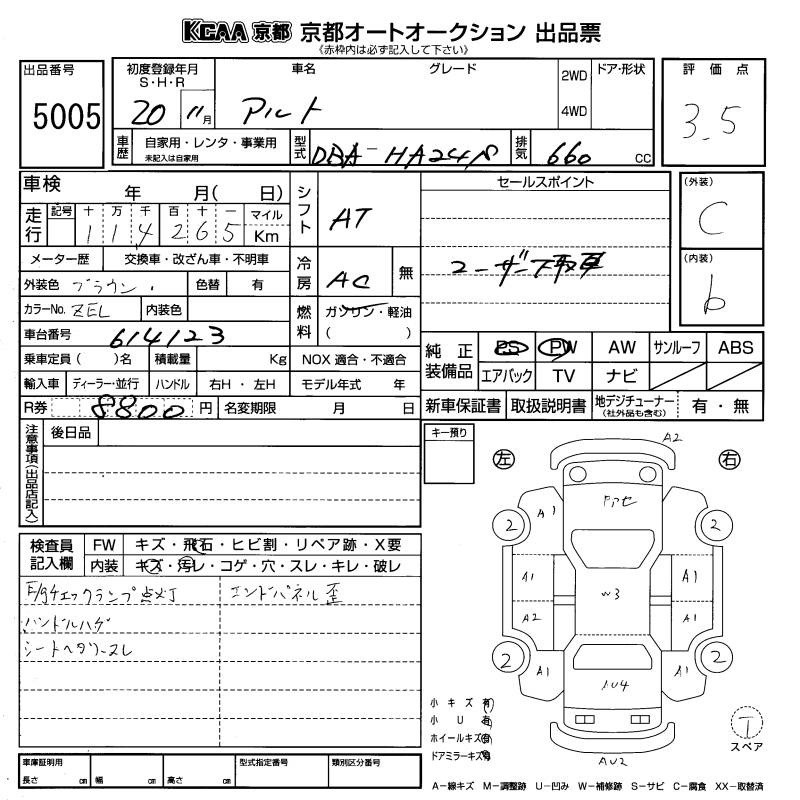 KCAA 京都 京都オートオークション 出品票
《赤枠内は必ず記入して下さい》
出品番号
5005
初度登録年月
S・H・R
20 11月
車名
アルト
グレード
2WD
4WD
ドア・形状
評価点
3.5
車歴
自家用・レンタ・事業用
未記入は自家用
型式
DBA-HA24S
排気
660 CC
車検 年 月( 日)
走行
記号 十 万 千 百 十 一 マイル
1 1 4 2 6 5 Km
メーター歴 交換車・改ざん車・不明車
外装色 ブラウン 色替 有
カラーNo. ZEL 内装色
車台番号 614123
乗車定員( )名 積載量 Kg
輸入車 ディーラー・並行 ハンドル 右H・左H
R券 8800円 名変期限 月 日
シフト
AT
冷房
AC 無
燃料
ガソリン・軽油
( )
NOX適合・不適合
モデル年式 年
セールスポイント
ユーザー下取車
(外装)
C
(内装)
b
純正装備品
PS PW AW サンルーフ ABS
エアバック TV ナビ
新車保証書 取扱説明書 地デジチューナー
(社外品も含む)
有・無
注意事項(出品店記入)
後日品
検査員記入欄
FW キズ・飛石・ヒビ割・リペア跡・X要
内装 キズ・汚レ・コゲ・穴・スレ・キレ・破レ
E/gチェックランプ点灯
ハンドルハゲ
シートヘタリ・スレ
エンドパネル歪
キー預り
左
右
A2
A1
2
2
A1
A1
W3
A2
A1
2
2
A1
A1
AU4
AU2
小キズ有
小U有
ホイールキズ有
ドアミラーキズ有
T
スペア
車庫証明用
長さ cm 幅 cm 高さ cm
型式指定番号
類別区分番号
A-線キズ M-調整跡 U-凹み W-補修跡 S-サビ C-腐食 XX-取替済